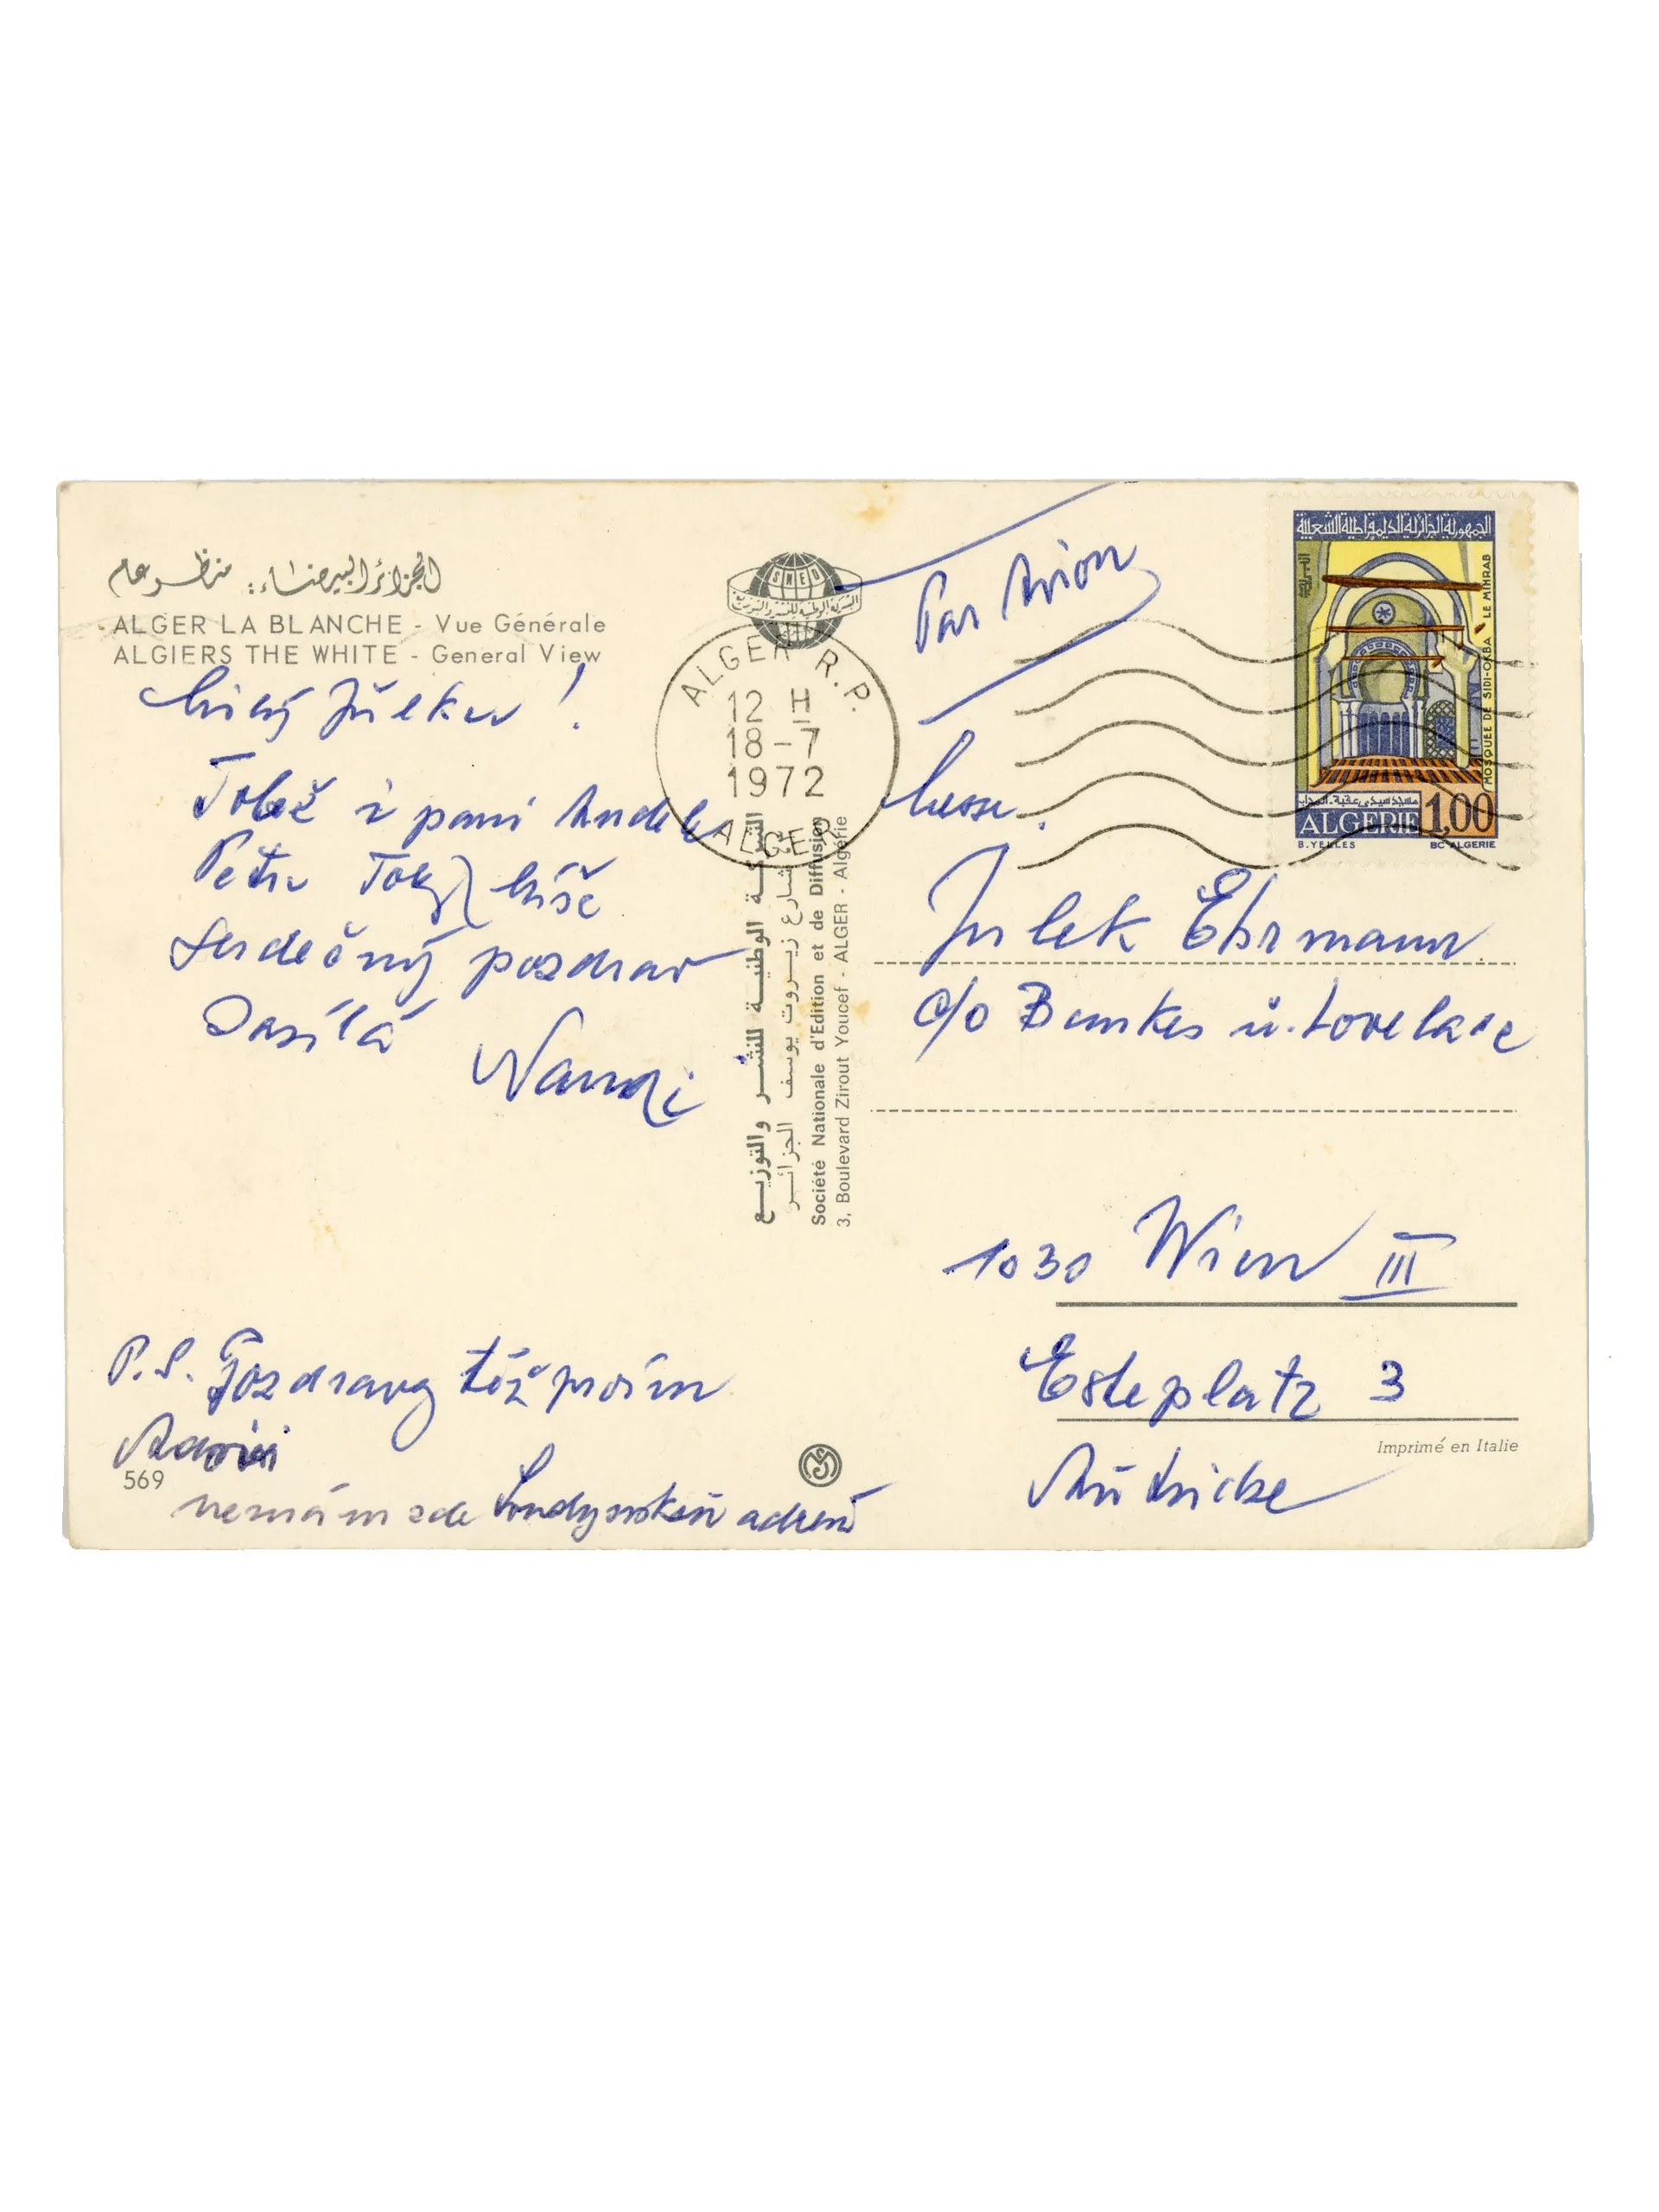 الجزائر البيضاء: منظر عام
ALGER LA BLANCHE - Vue Générale
ALGIERS THE WHITE - General View
Milý Júlku!
Tobě i paní
Petru
Srdečný pozdrav
Dasílá
Nandi
P.S. Pozdravy též prosím
569
nemám zde Londýnskou adresu
SNED
الشركة الوطنية للنشر والتوزيع
ALGER R.P.
12 H
18-7
1972
ALGER
الشركة الوطنية للنشر والتوزيع
شارع زيروت يوسف الجزائر
Société Nationale d'Edition et de Diffusion
3, Boulevard Zirout Youcef - ALGER - Algérie
Par Avion
الجمهورية الجزائرية الديمقراطية الشعبية
MOSQUEE DE SIDI-OKBA LE MIHRAB
مسجد سيدي عقبة - المحراب
ALGERIE 1,00
B. YELLES BC ALGERIE
Julek Ehrmann
c/o Bunkes u. Lovelace
1030 Wien III
Esteplatz 3
Imprimé en Italie
Autriche